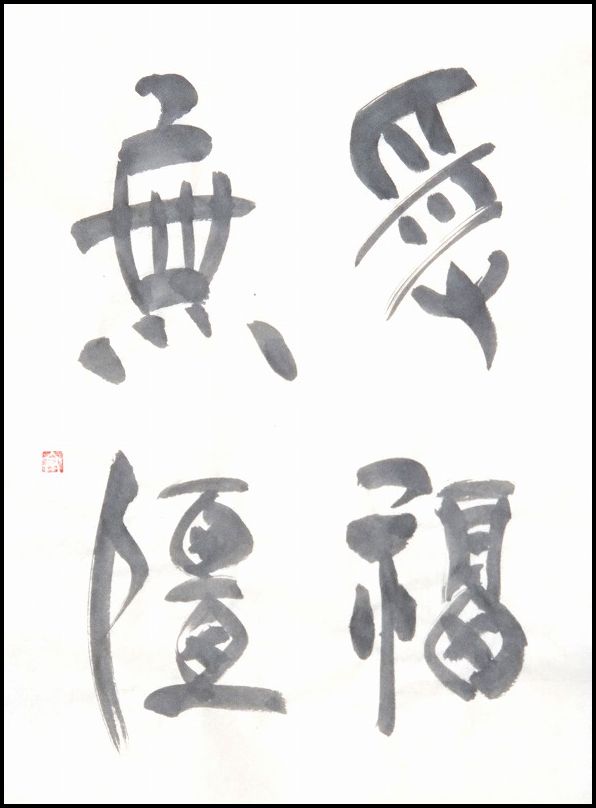 受福
無疆